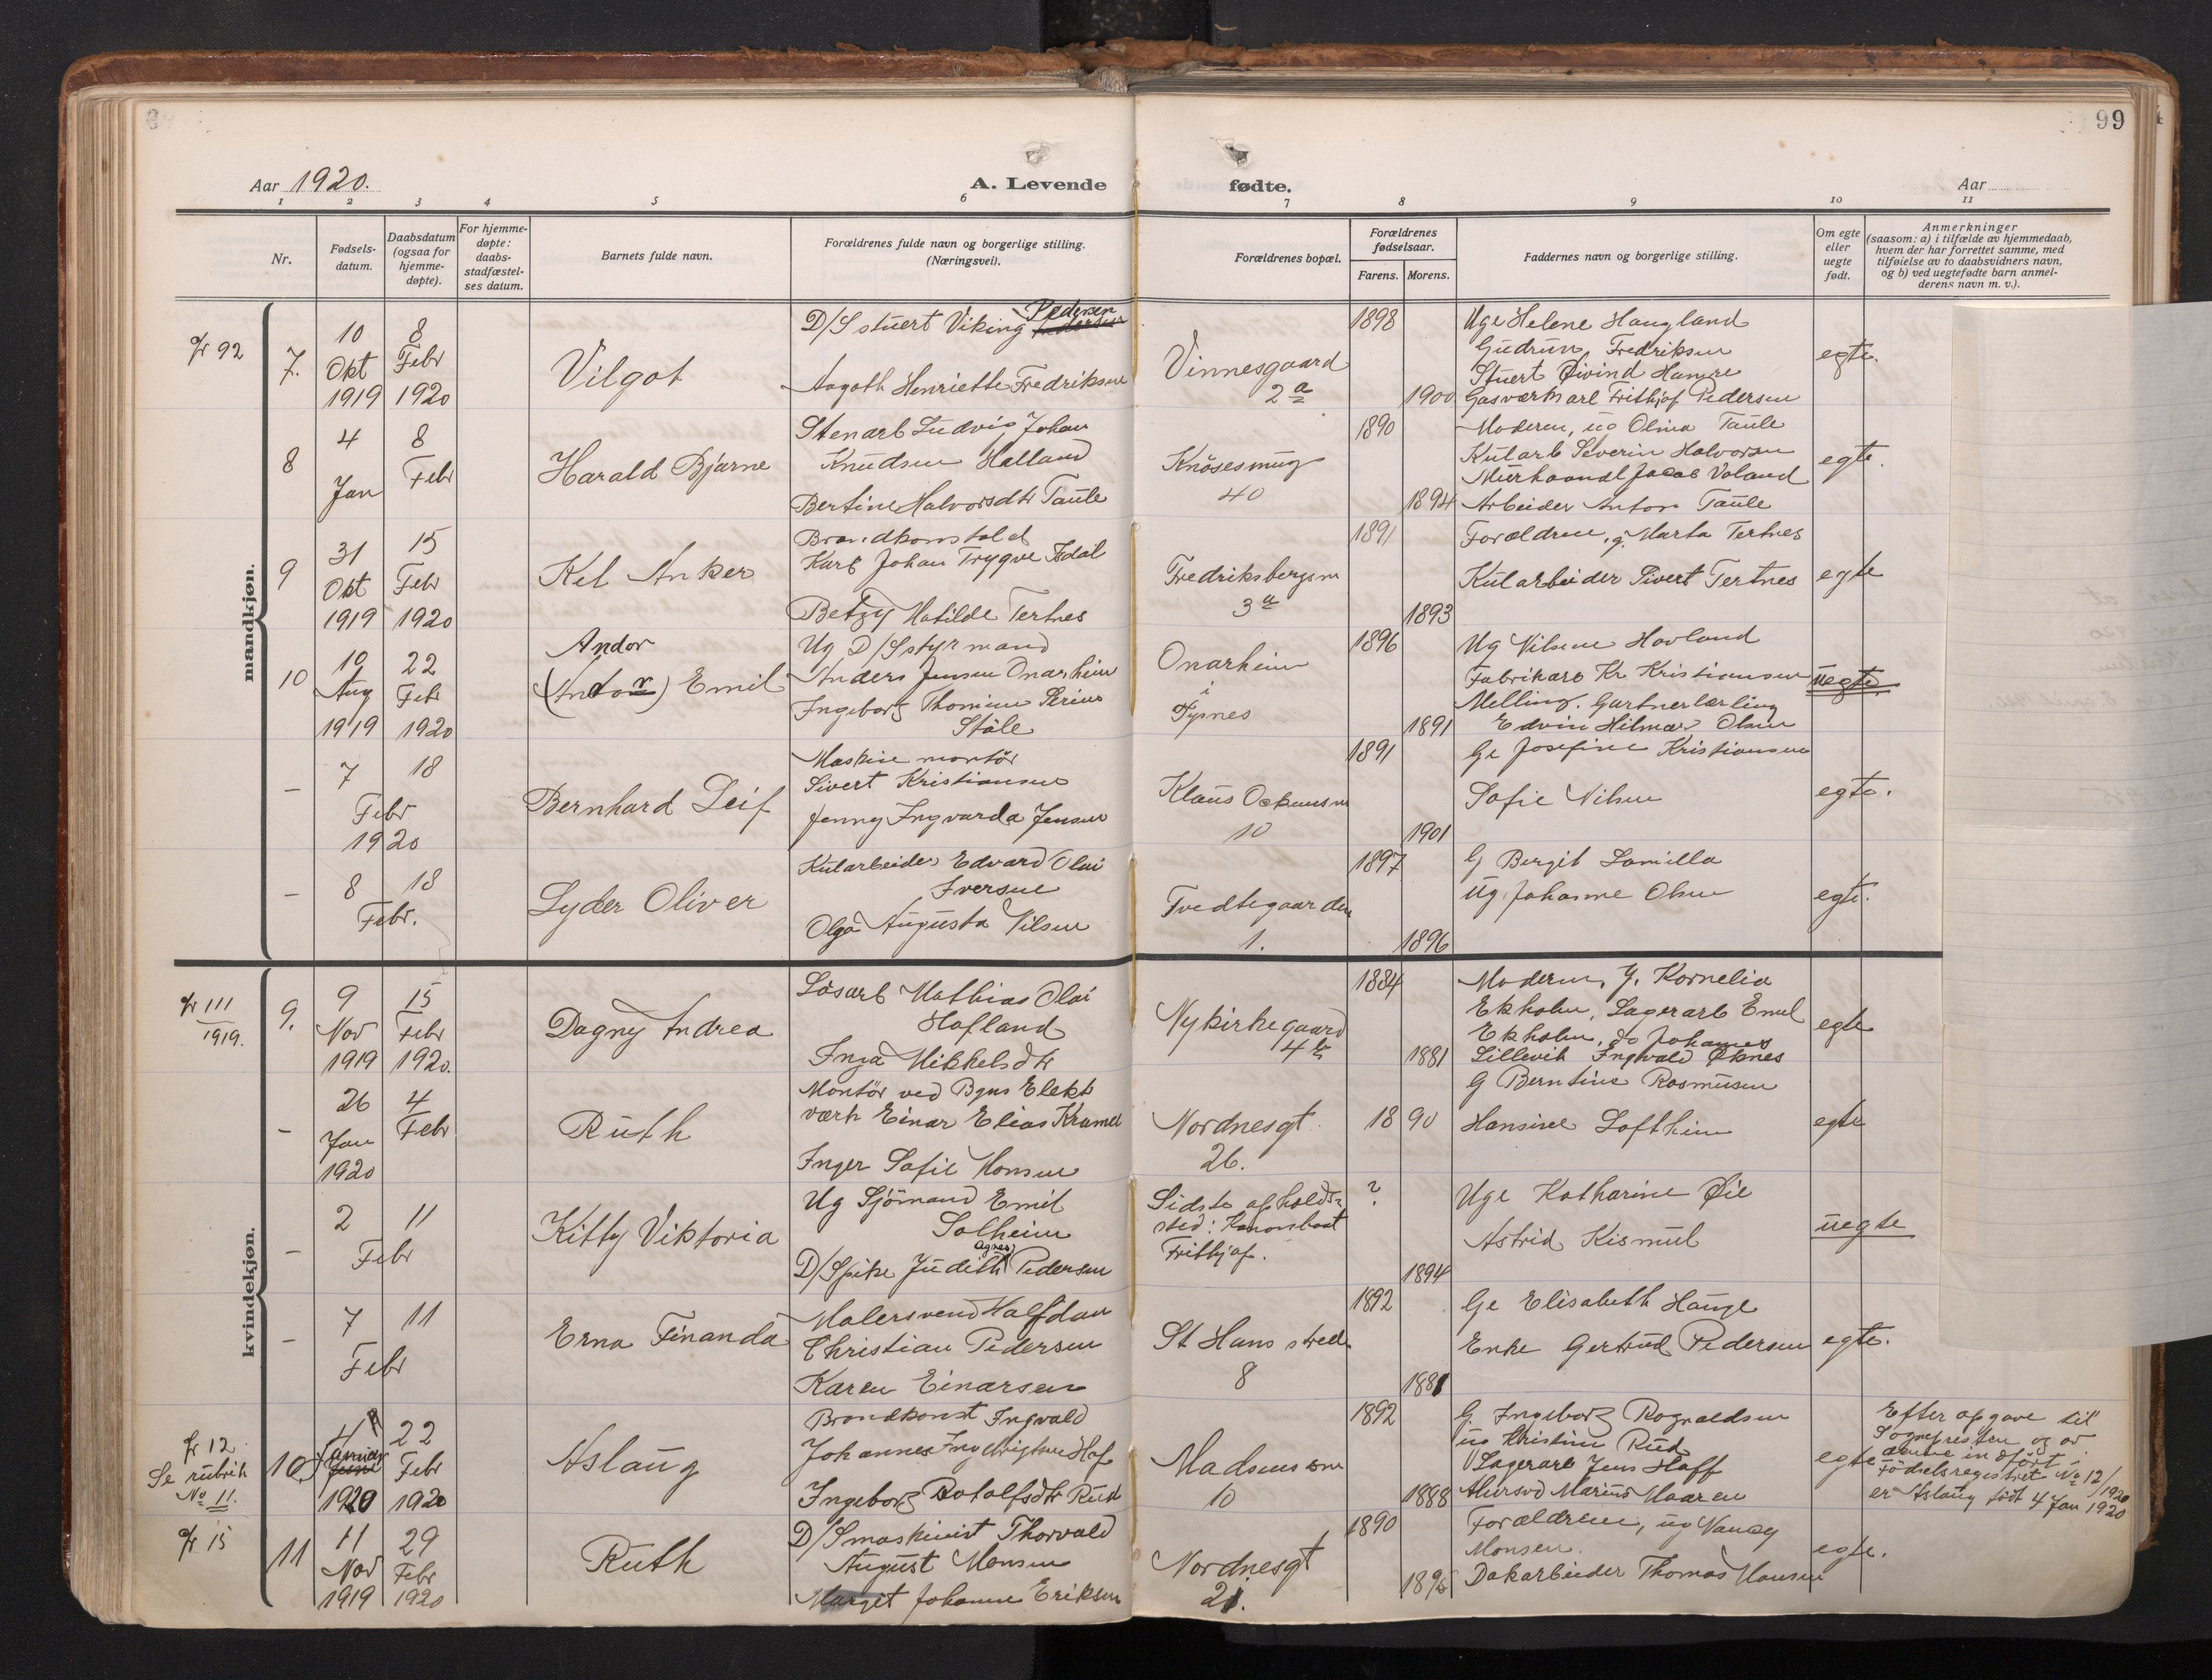 99
Aar 1920.
A. Levende
fødte.
Aar
1
2
3
4
5
6
7
8
9
10
11
Nr.
Fødsels-
datum.
Daabsdatum
(ogsaa for
hjemme-
døpte).
For hjemme-
døpte:
daabs-
stadfæstel-
ses datum.
Barnets fulde navn.
Forældrenes fulde navn og borgerlige stilling.
(Næringsvei).
Forældrenes bopæl.
Forældrenes
fødselsaar.
Farens.
Morens.
Faddernes navn og borgerlige stilling.
Om egte
eller
uegte
født.
Anmerkninger
(saasom: a) i tilfælde av hjemmedaab,
hvem der har forrettet samme, med
tilføielse av to daabsvidners navn,
og b) ved uegtefødte barn anmel-
derens navn m. v.).
mandkjøn.
92
7.
10
Okt
1919
8
Febr
1920
Vilgot
D/S stuert Viking Pedersen
Aagoth Henriette Fredriksen
Vinnesgaard
2a
1898
1900
Uge Helene Haugland
Gudrun Fredriksen
Stuert Øivind Hamre
Gasverksarb Frithjof Pedersen
egte.
8
4
Jan
8
Febr
Harald Bjarne
Stenarb Ludvig Johan
Knudsen Halland
Bertine Halvorsdtr Taule
Knøsesmug
40
1890
1894
Moderen, ug Olina Taule
Kularb Severin Halvorsen
Murhaandl Jacob Voland
Arbeider Anton Taule
egte.
9
31
Okt
1919
15
Febr
1920
Kel Anker
Brandkonstabel
Karl Johan Trygve Edal
Betzy Matilde Tertnes
Fredriksbergsm
3a
1891
1893
Forældrene, g. Marta Tertnes
Kularbeider Sivert Tertnes
egte
10
10
Aug
1919
22
Febr
1920
Andor
(Andor) Emil
Ug D/S styrmand
Anders Jensen Onarheim
Ingeborg Thomine Serine
Støle
Onarheim
i
Tysnes
1896
1891
Ug Nilsine Hovland
Fabrikarb Kr Kristiansen
Melling. Gartnerlærling
Edvin Hilmar Olsen
uegte
–
7
18
Febr
1920
Bernhard Leif
Maskinmontør
Sivert Kristiansen
Jenny Ingvarda Jensen
Klaus Ockensm
10
1891
1901
Ge Josefine Kristiansen
Sofie Nilsen
egte.
–
8
18
Febr.
Lyder Oliver
Kularbeider Edvard Olai
Iversen
Olga Augusta Nilsen
Tvedtegaarden
1.
1897
1896
G Bergit Lamilla
ug Johanne Olsen
egte.
kvindekjøn.
111
1919.
9.
9
Nov
1919
15
Febr
1920.
Dagny Andrea
Løsarb Mathias Olai
Hafland
Inga Mikkelsdtr
Nykirkegaard
4
1884
1881
Moderen, g. Kornelia
Ekholm, Lagerarb Emil
Ekholm, do Johannes
Lillevik Ingvald Øknes
egte
–
26
Jan
1920
4
Febr
Ruth
Montør ved Bgns Elekt
verk Einar Elias Kramel
Inger Sofie Monsen
Nordnesgt.
26.
18 90
G Berntine Rasmussen
Hansine Loftheim
egte
–
2
11
Febr
Kitty Viktoria
Ug Sjømand Emil
Solheim
Agnes
D/S pike Judith Pedersen
Sidste opholds-
sted: Kanonbaat
Frithjof.
?
1894
Uge Katharine Øie
Astrid Kismul
uegte
–
7
11
Febr
Erna Finanda
Malersvend Halfdan
Christian Pedersen
Karen Einarsen
St Hans stred.
8
1892
1881
Ge Elisabeth Hauge
Enke Gertrud Pedersen
egte.
12
Se rubrik
No 11.
10
4
Januar
1920
22
Febr
1920
Aslaug
Brandkonst Ingvald
Johannes Ingebrigtsen Hof
Ingeborg Rotolfsdtr Rud
Madsens sm
10
1892
1888
G. Ingeborg Rognaldsen
ug Kristine Rud
Lagerarb Jens Hoff
Mursvd Marius Maaren
egte
Efter opgave til
Sognepresten og av
denne indført i
Fødselsregistret No 12/1920
er Aslaug født 4 Jan 1920
15
11
11
Nov
1919
29
Febr
1920
Ruth
D/S maskinist Thorvald
August Monsen
Margit Johanne Eriksen
Nordnesgt
21.
1890
1895
Forældrene, ug Nancy
Monsen.
Dokarbeider Thomas Monsen
egte.